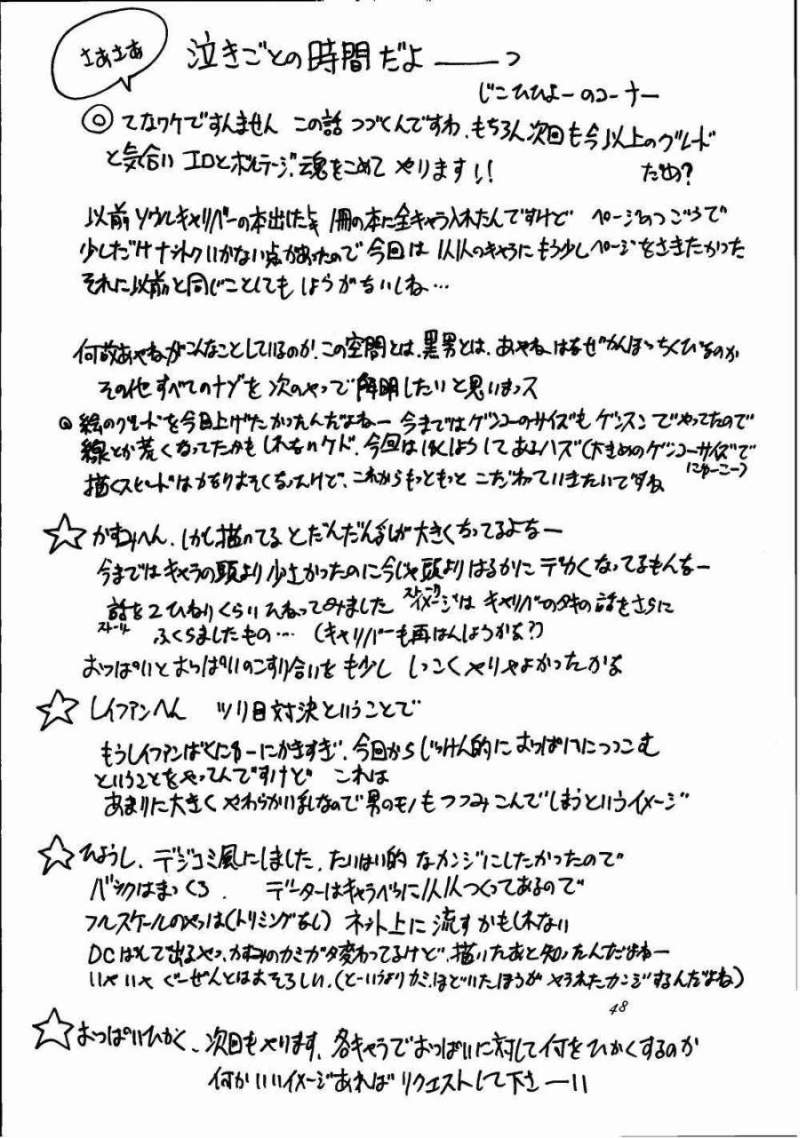 さぁさぁ
泣きごとの時間だよ――っ
じこひひょーのコーナー
◎ てなワケですんません この話 つづくんですわ、もちろん次回も今以上のグレード
と気合い エロとボルテージ、魂をこめて やります!!
だめ?
以前 ソウルキャリバーの本出したとき 1冊の本に全キャラ入れたんですけど ページのつごうで
少しだけナットクいかない点があったので 今回は 1人1人のキャラにもう少しページをさきたかった
それに以前と同じことしても しょうがないしね…
何故あやねがこんなことしているのか、この空間とは、黒男とは、あやねはなぜ
その他 すべてのナゾを 次のやつで 解明したいと思いまっス
◎ 絵のグレードを今回上げたかったんだよねー 今まではゲンコーのサイズも ゲンスンでやってたので
線とか荒くなってたかもしれないケド、今回は してあるハズ(大きめのゲンコーサイズで
にゅーこー)
描くスピードはかなりおそくなったけど、これからもっともっと こだわっていきたいですね
☆ かすみへん、しかし描いてる とだんだん乳が大きくなってるよなー
今まではキャラの頭より小さかったのに今じゃ頭よりはるかに デカくなってるもんなー
話を2ひねりくらいひねってみました イメージは キャリバーのタキの話をさらに
ストーリー
ふくらましたもの… (キャリバーも再はんしようかな?)
おっぱいとおっぱいのこすり合いを も少し しつこくやりゃよかったかな
☆ レイファンへん ツリ目対決ということで
もうレイファンばくにゅーにかきすぎ、今回からじっけん的におっぱいにつっこむ
ということをやってんですけど これは
あまりに大きく やわらかい乳なので男のモノもつつみこんでしまうというイメージ
☆ ひょうし、デジコミ風にしました、たいはい的 なカンジにしたかったので
バックはまっくろ、 データーはキャラべつに1人1人つくってあるので
フルスケールのやつは(トリミングなし) ネット上に流すかもしれない
DCはんで出るやつ、かすみのカミガタ変わってるけど、描いたあと知ったんだよねー
いやいや ぐーぜんとはおそろしい、(とーいうよりカミ、ほどいたほうが やられたカンジするんだよね)
48
☆ おっぱいひかく、次回もやります、各キャラでおっぱいに対して何をひかくするのか
何かいいイメージあれば リクエストして下さーいい